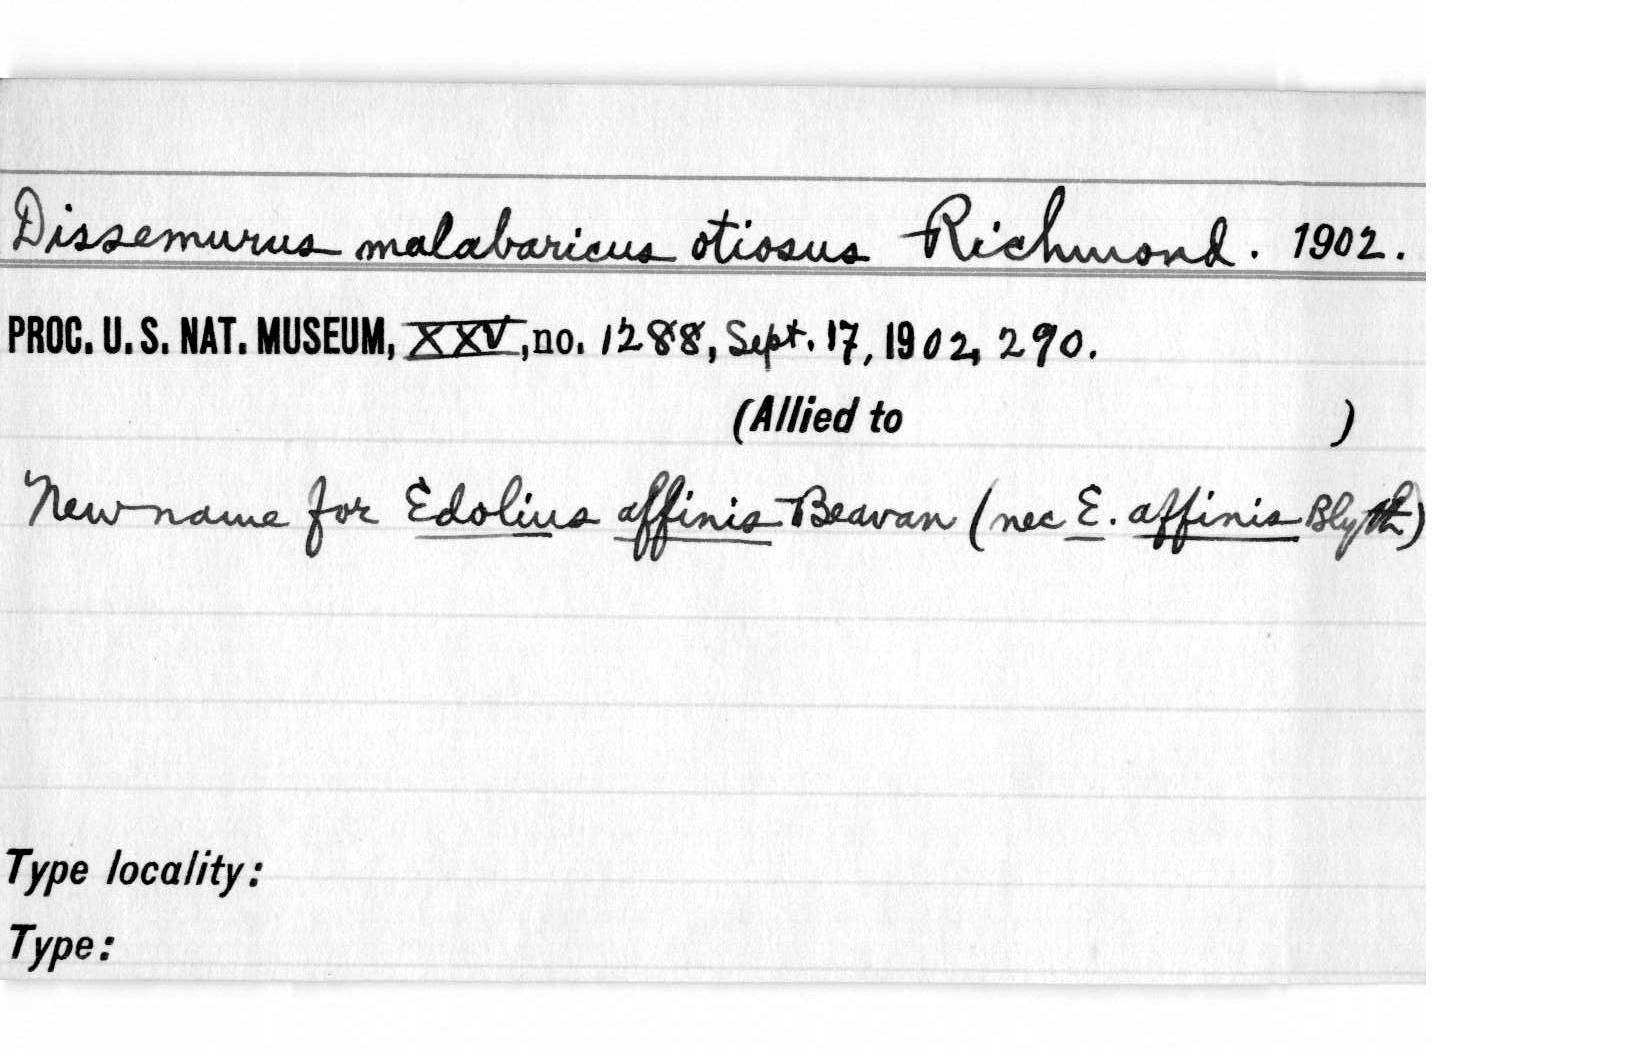 Dissemurus malabaricus otiosus Richmond. 1902.
PROC. U. S. NAT. MUSEUM, XXV, no. 1288, Sept. 17, 1902, 290.
(Allied to )
New name for Edolius affinis Beavan (nec E. affinis Blyth)
Type locality:
Type: